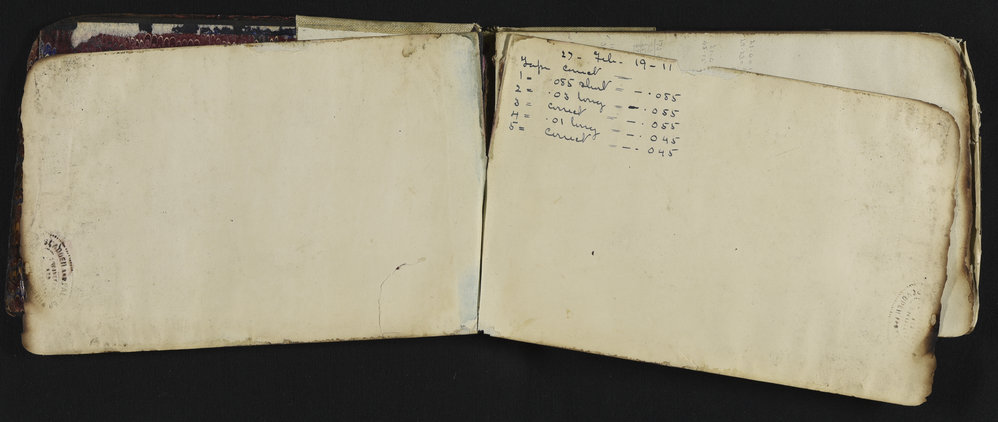 27 - Feb - 19 - 11
Tape correct —
1 = .055 short = - .055
2 = .03 long = - .055
3 = correct = - .055
4 = .01 long - - .045
5 = correct - - . 045